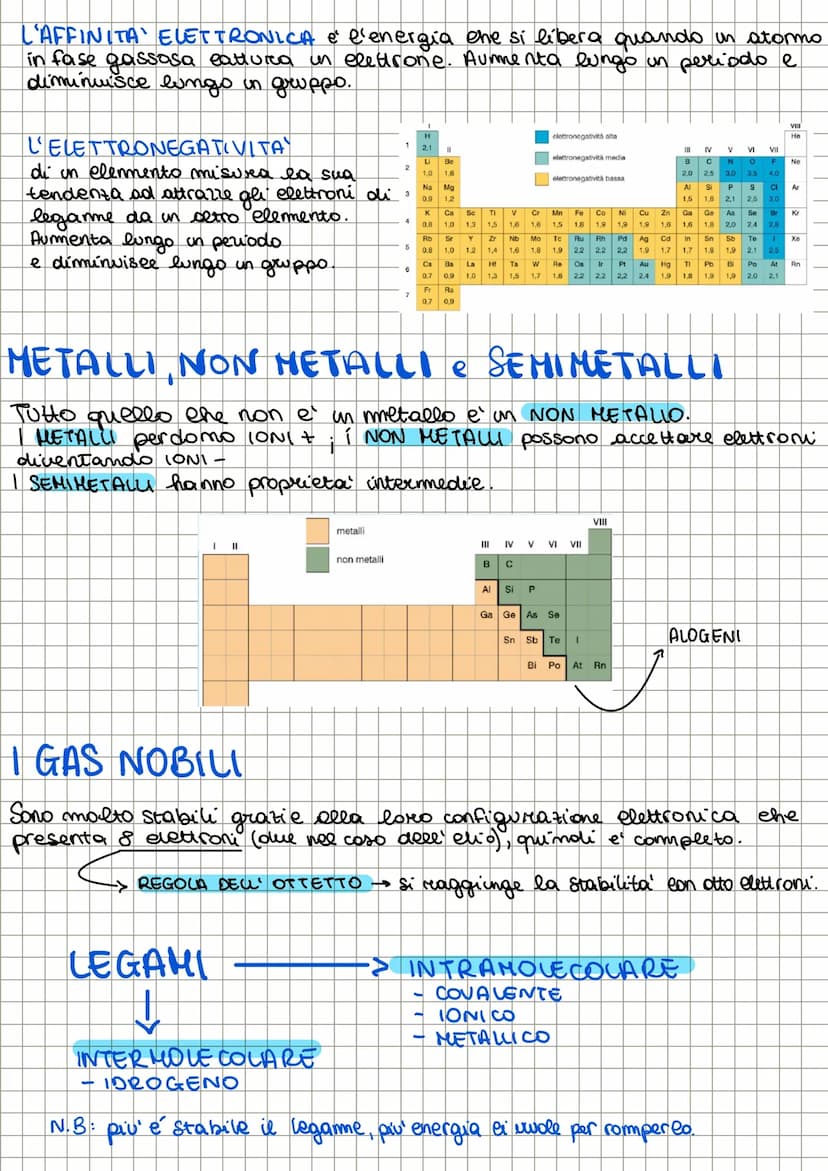 L'AFFINITA' ELETTRONICA e' l'energia che si libera quando un atomo
in fase gassosa cattura un elettrone. Aumenta lungo un periodo e
diminuisce lungo un gruppo.
L'ELETTRONEGATIVITA'
di un elemento misura la sua
tendenza ad attrarre gli elettroni di
legame da un altro elemento.
Aumenta lungo un periodo
e diminuisce lungo un gruppo.
I VIII
H elettronegatività alta He
1 2,1 II III IV V VI VII
Li Be elettronegatività media B C N O F Ne
2 1,0 1,6 2,0 2,5 3,0 3,5 4,0
Na Mg elettronegatività bassa Al Si P S Cl Ar
3 0,9 1,2 1,5 1,8 2,1 2,5 3,0
K Ca Sc Ti V Cr Mn Fe Co Ni Cu Zn Ga Ge As Se Br Kr
4 0,8 1,0 1,3 1,5 1,6 1,6 1,5 1,8 1,9 1,9 1,9 1,6 1,6 1,8 2,0 2,4 2,8
Rb Sr Y Zr Nb Mo Tc Ru Rh Pd Ag Cd In Sn Sb Te I Xe
5 0,8 1,0 1,2 1,4 1,6 1,8 1,9 2,2 2,2 2,2 1,9 1,7 1,7 1,8 1,9 2,1 2,5
Cs Ba La Hf Ta W Re Os Ir Pt Au Hg Tl Pb Bi Po At Rn
6 0,7 0,9 1,0 1,3 1,5 1,7 1,8 2,2 2,2 2,2 2,4 1,9 1,8 1,9 1,9 2,0 2,1
Fr Ra
7 0,7 0,9
METALLI, NON METALLI e SEMIMETALLI
Tutto quello che non e' un metallo e' un NON METALLO.
I METALLI perdono IONI + ; i NON METALLI possono accettare elettroni
diventando IONI -
I SEMIMETALLI hanno proprieta' intermedie.
metalli
non metalli
I II III IV V VI VII VIII
B C
Al Si P
Ga Ge As Se
Sn Sb Te I
Bi Po At Rn
ALOGENI
I GAS NOBILI
Sono molto stabili grazie alla loro configurazione elettronica che
presenta 8 elettroni (due nel caso dell'elio), quindi e' completo.
REGOLA DELL'OTTETTO → si raggiunge la stabilita' con otto elettroni.
LEGAMI → INTRAMOLECOLARE
- COVALENTE
- IONICO
- METALLICO
INTERMOLECOLARE
- IDROGENO
N.B: piu' e' stabile il legame, piu' energia ci vuole per romperlo.